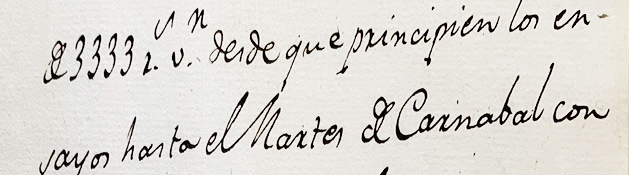 de 3333 r.s v.n desde que principien los en-
sayos hasta el Martes de Carnabal con